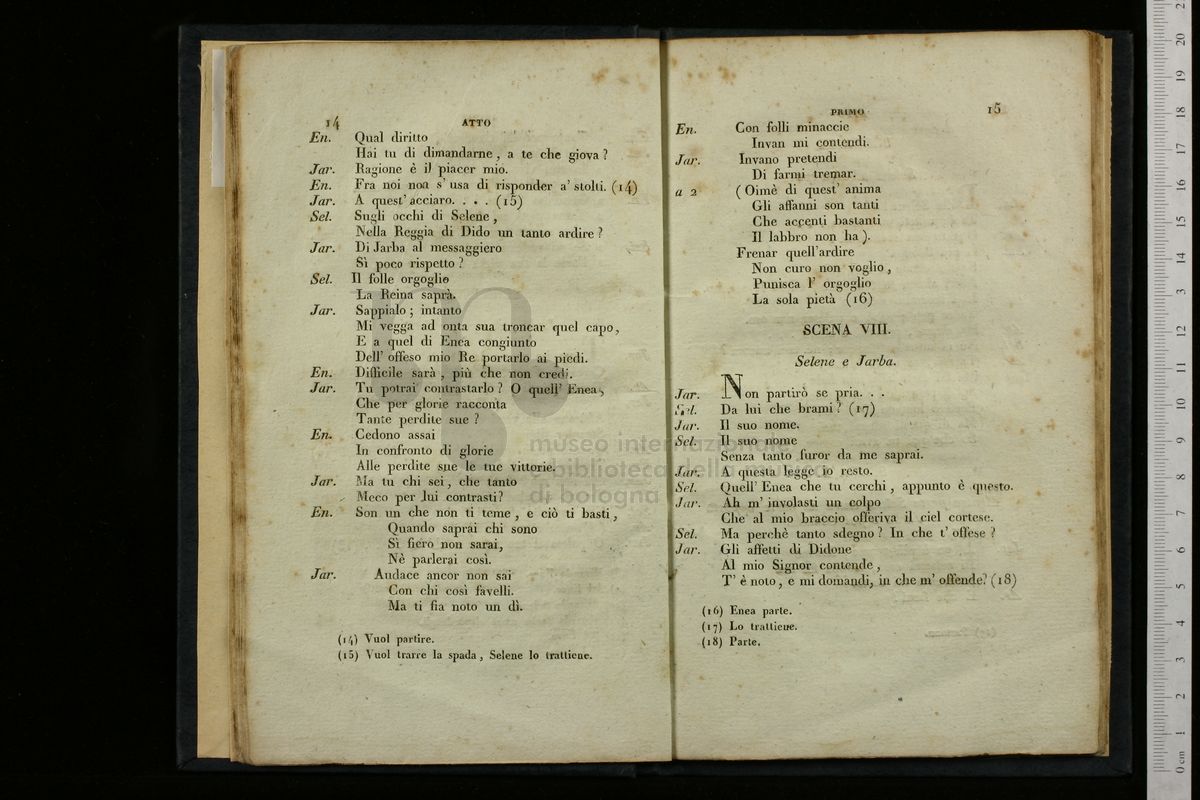 14 ATTO
En. Qual diritto
Hai tu di dimandarne, a te che giova?
Jar. Ragione è il piacer mio.
En. Fra noi non s' usa di risponder a' stolti. (14)
Jar. A quest' acciaro. . . . (15)
Sel. Sugli occhi di Selene,
Nella Reggia di Dido un tanto ardire?
Jar. Di Jarba al messaggiero
Sì poco rispetto?
Sel. Il folle orgoglio
La Reina saprà.
Jar. Sappialo; intanto
Mi vegga ad onta sua troncar quel capo,
E a quel di Enea congiunto
Dell' offeso mio Re portarlo ai piedi.
En. Difficile sarà, più che non credi.
Jar. Tu potrai contrastarlo? O quell' Enea,
Che per glorie racconta
Tante perdite sue?
En. Cedono assai
In confronto di glorie
Alle perdite sue le tue vittorie.
Jar. Ma tu chi sei, che tanto
Meco per lui contrasti?
En. Son un che non ti teme, e ciò ti basti,
Quando saprai chi sono
Sì fiero non sarai,
Nè parlerai così.
Jar. Audace ancor non sai
Con chi così favelli.
Ma ti fia noto un dì.
(14) Vuol partire.
(15) Vuol trarre la spada, Selene lo trattiene.
PRIMO 15
En. Con folli minaccie
Invan mi contendi.
Jar. Invano pretendi
Di farmi tremar.
a 2 (Oimè di quest' anima
Gli affanni son tanti
Che accenti bastanti
Il labbro non ha).
Frenar quell'ardire
Non curo non voglio,
Punisca l' orgoglio
La sola pietà (16)
SCENA VIII.
Selene e Jarba.
Jar. Non partirò se pria. . .
Sel. Da lui che brami? (17)
Jar. Il suo nome.
Sel. Il suo nome
Senza tanto furor da me saprai.
Jar. A questa legge io resto.
Sel. Quell' Enea che tu cerchi, appunto è questo.
Jar. Ah m' involasti un colpo
Che al mio braccio offeriva il ciel cortese.
Sel. Ma perchè tanto sdegno? In che t' offese?
Jar. Gli affetti di Didone
Al mio Signor contende,
T' è noto, e mi domandi, in che m' offende? (18)
(16) Enea parte.
(17) Lo trattiene.
(18) Parte.
museo internazionale
e biblioteca della musica
di bologna
0 cm 1 2 3 4 5 6 7 8 9 10 11 12 13 14 15 16 17 18 19 20 21